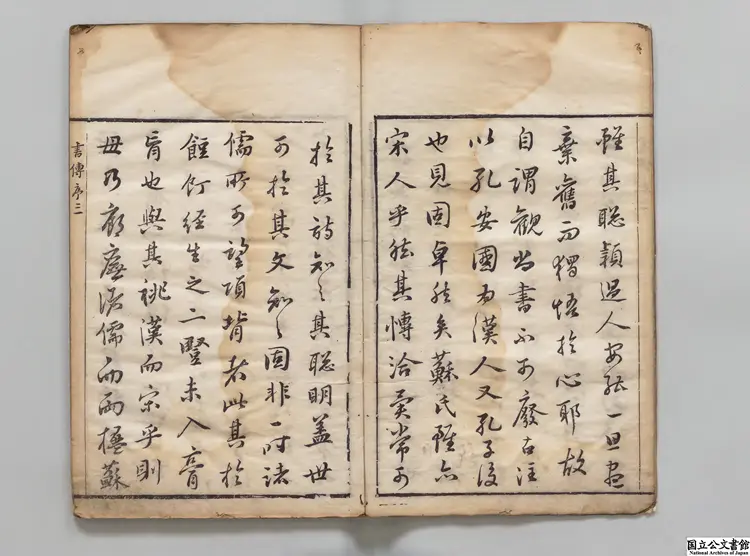 雖其聰穎過人安能一旦盡
棄舊而猶悟於心耶故
自謂觀尚書不可廢古注
以孔安國為漢人又孔子後
也見固卓然矣蘇氏雖亦
宋人乎然其愽洽奚啻可
於其詩知之其聰明蓋世
可於其文知之固非一時諸
儒所可望項背者此其於
餖飣經生之二豎未入膏
肓也與其祧漢而宋乎則
毋乃廊廡後儒而兩楹蘇
書傳序三
国立公文書館
National Archives of Japan